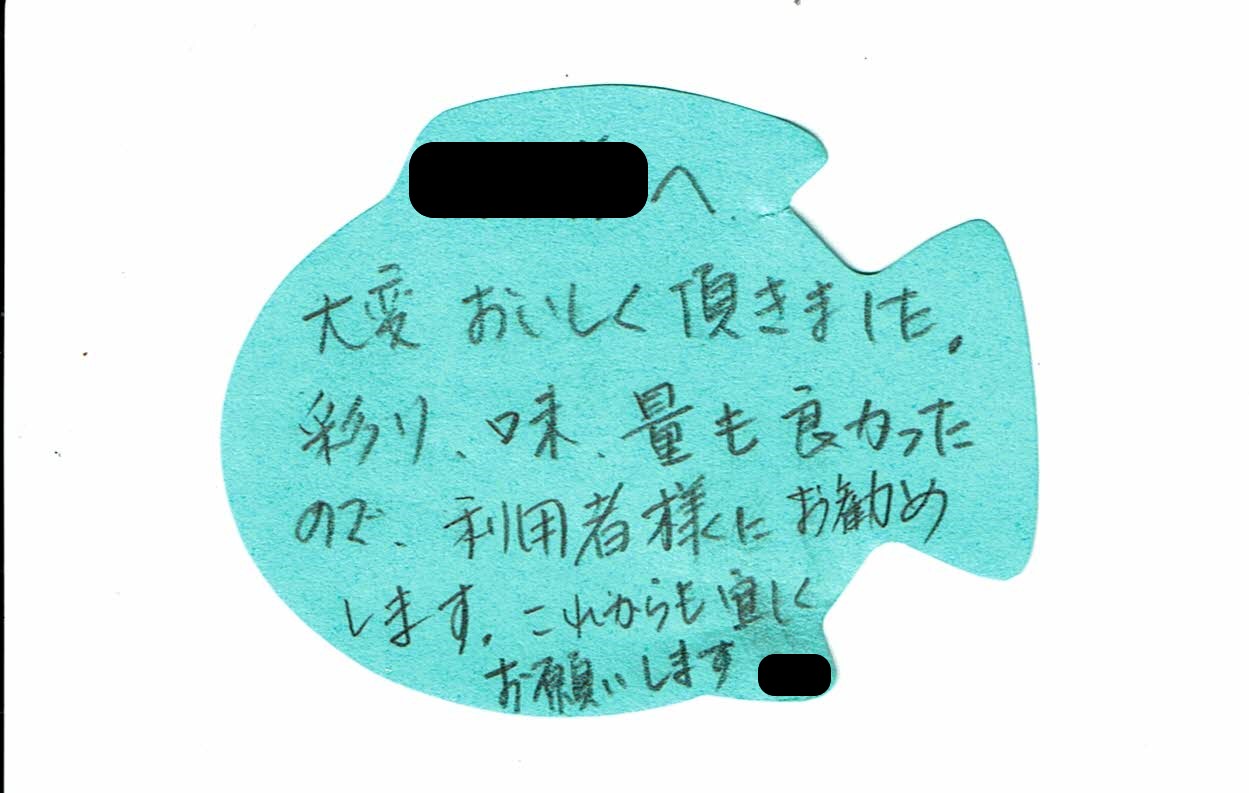 へ
大変 おいしく 頂きました.
彩り、味、量も良かった
ので、利用者様にお勧め
します. これからも宜しく
お願いします